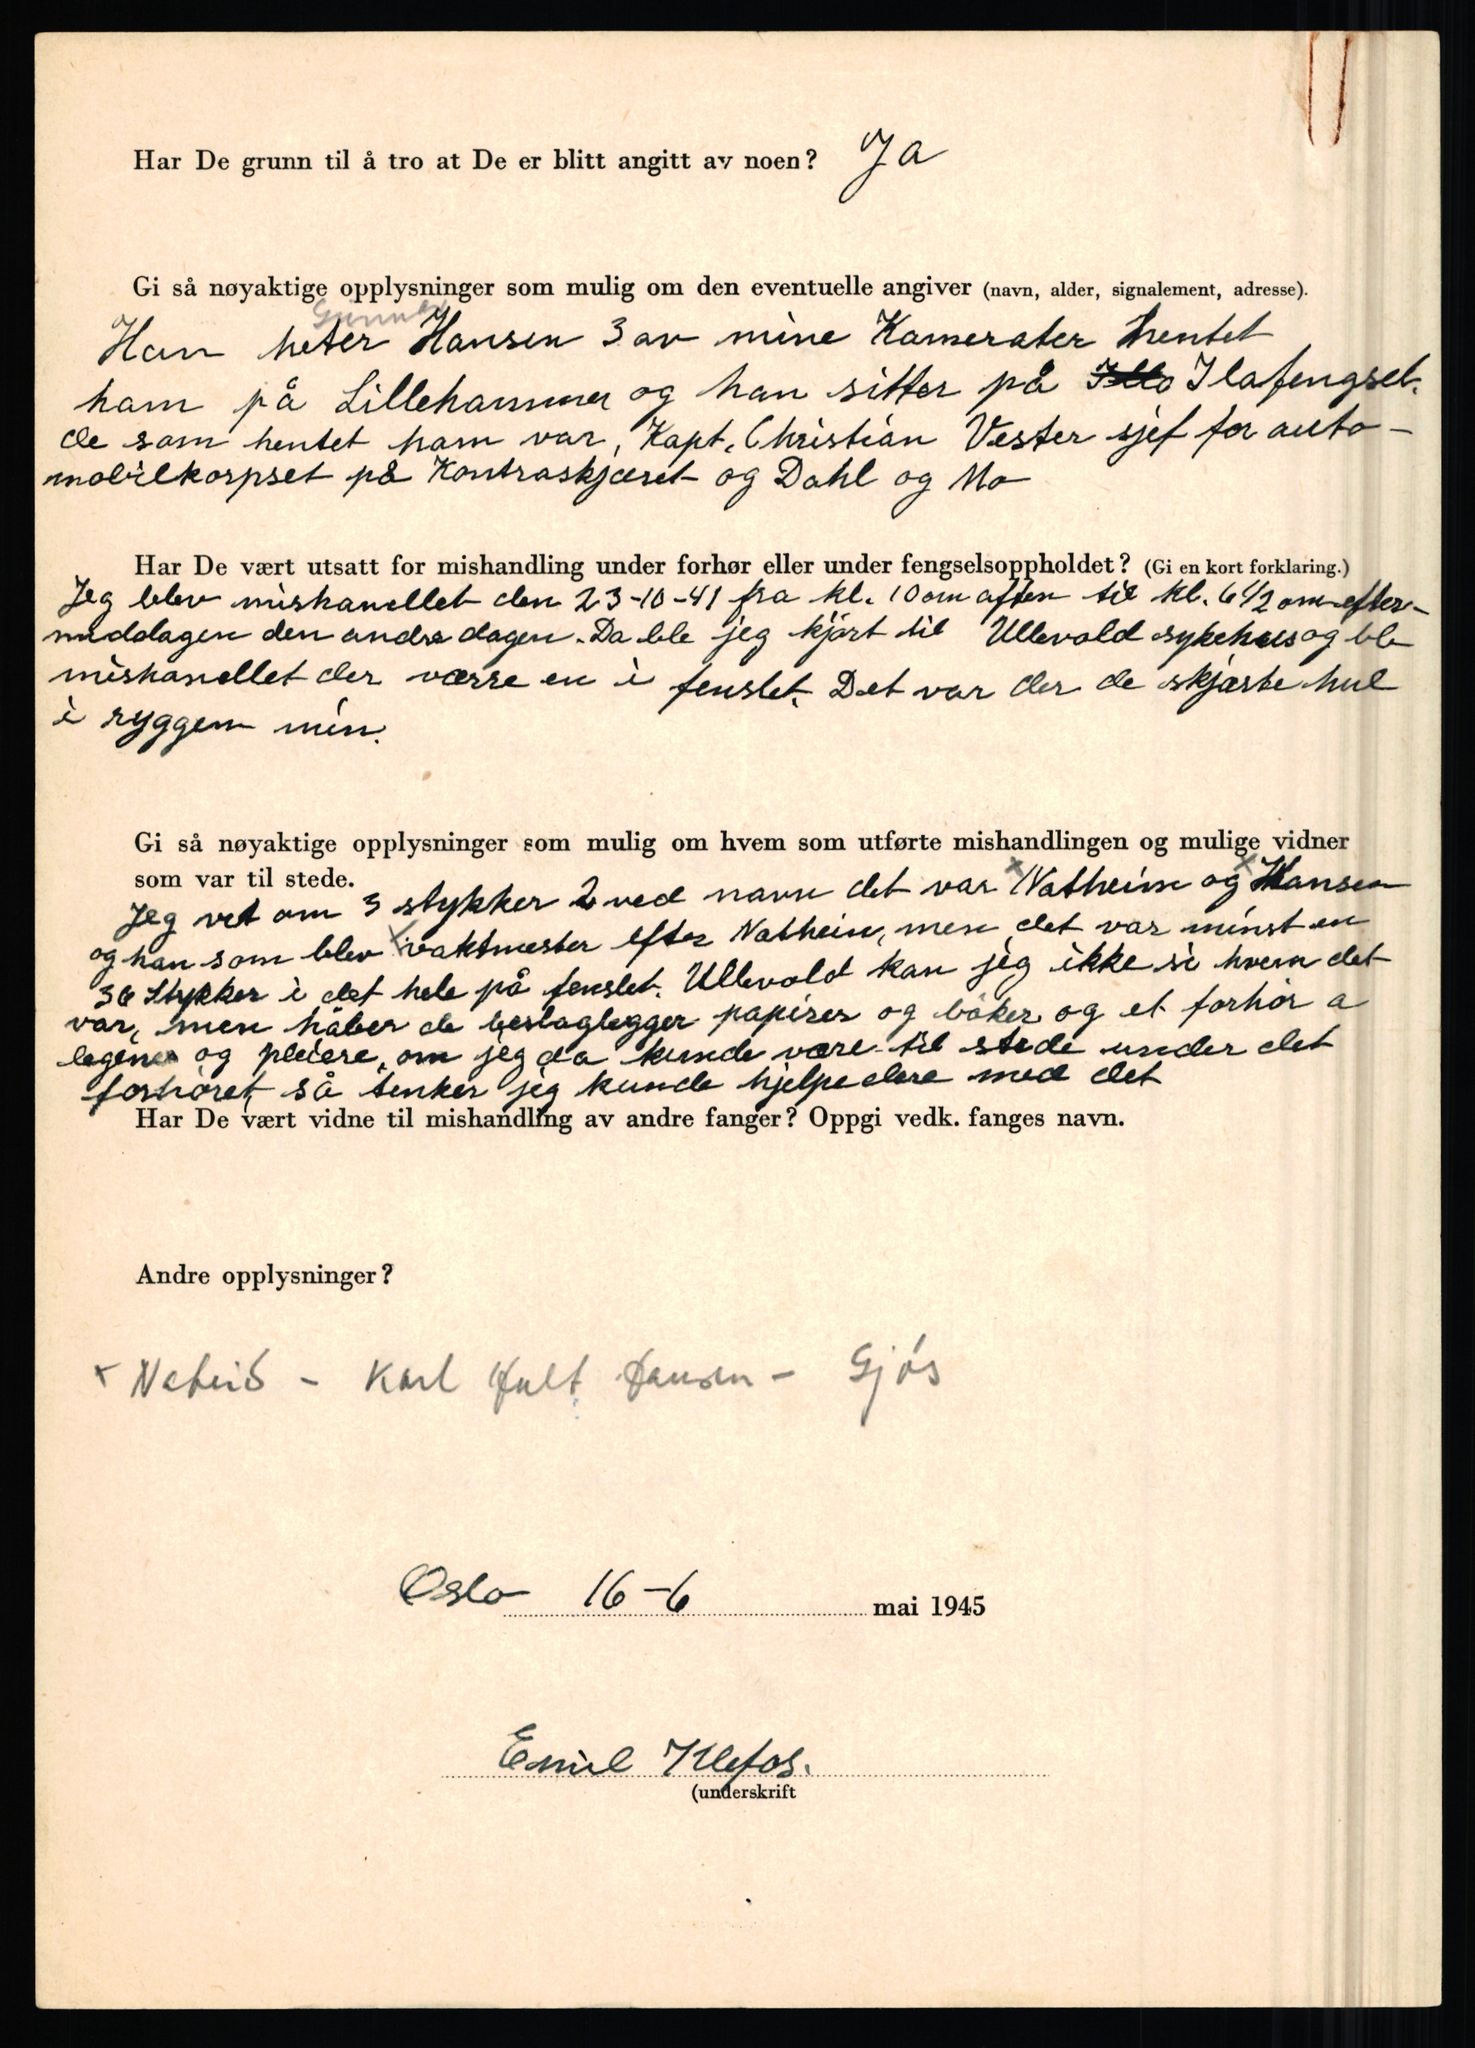 Har De grunn til å tro at De er blitt angitt av noen? Ja
Gi så nøyaktige opplysninger som mulig om den eventuelle angiver (navn, alder, signalement, adresse).
Gunnar
Han heter Hansen 3 av mine Kamerater hentet
ham på Lillehammer og han sitter på Illo Ilafengsel.
de som hentet ham var, Kapt. Christian Vester sjef for auto-
mobilkorpset på Kontraskjæret og Dahl og Mo
Har De vært utsatt for mishandling under forhør eller under fengselsoppholdet? (Gi en kort forklaring.)
Jeg blev mishanellet den 23-10-41 fra kl. 10 om aften til kl. 6 1/2 om efter-
middagen den andre dagen. Da ble jeg kjørt til Ullevold sykehus og ble
mishanellet der værre en i fenslet. Det var der de skjærte hul
i ryggen min.
Gi så nøyaktige opplysninger som mulig om hvem som utførte mishandlingen og mulige vidner
som var til stede.
Jeg vet om 3 stykker 2 ved navn det var x Natheim og x Hansen
og han som blev x vaktmester efter Nathein, men det var minst en
36 Stykker i det hele på fenslet. Ullevold kan jeg ikke si hvem det
var, men håber de beslaglegger papirer og bøker og et forhør a
legene og pleiere, om jeg da kunde være til stede under det
forhøret, så tenker jeg kunde hjelpe dere med det
Har De vært vidne til mishandling av andre fanger? Oppgi vedk. fanges navn.
Andre opplysninger?
x - Karl Hansen - Gjøs
Oslo 16-6 mai 1945
Emil Klefos.
(underskrift